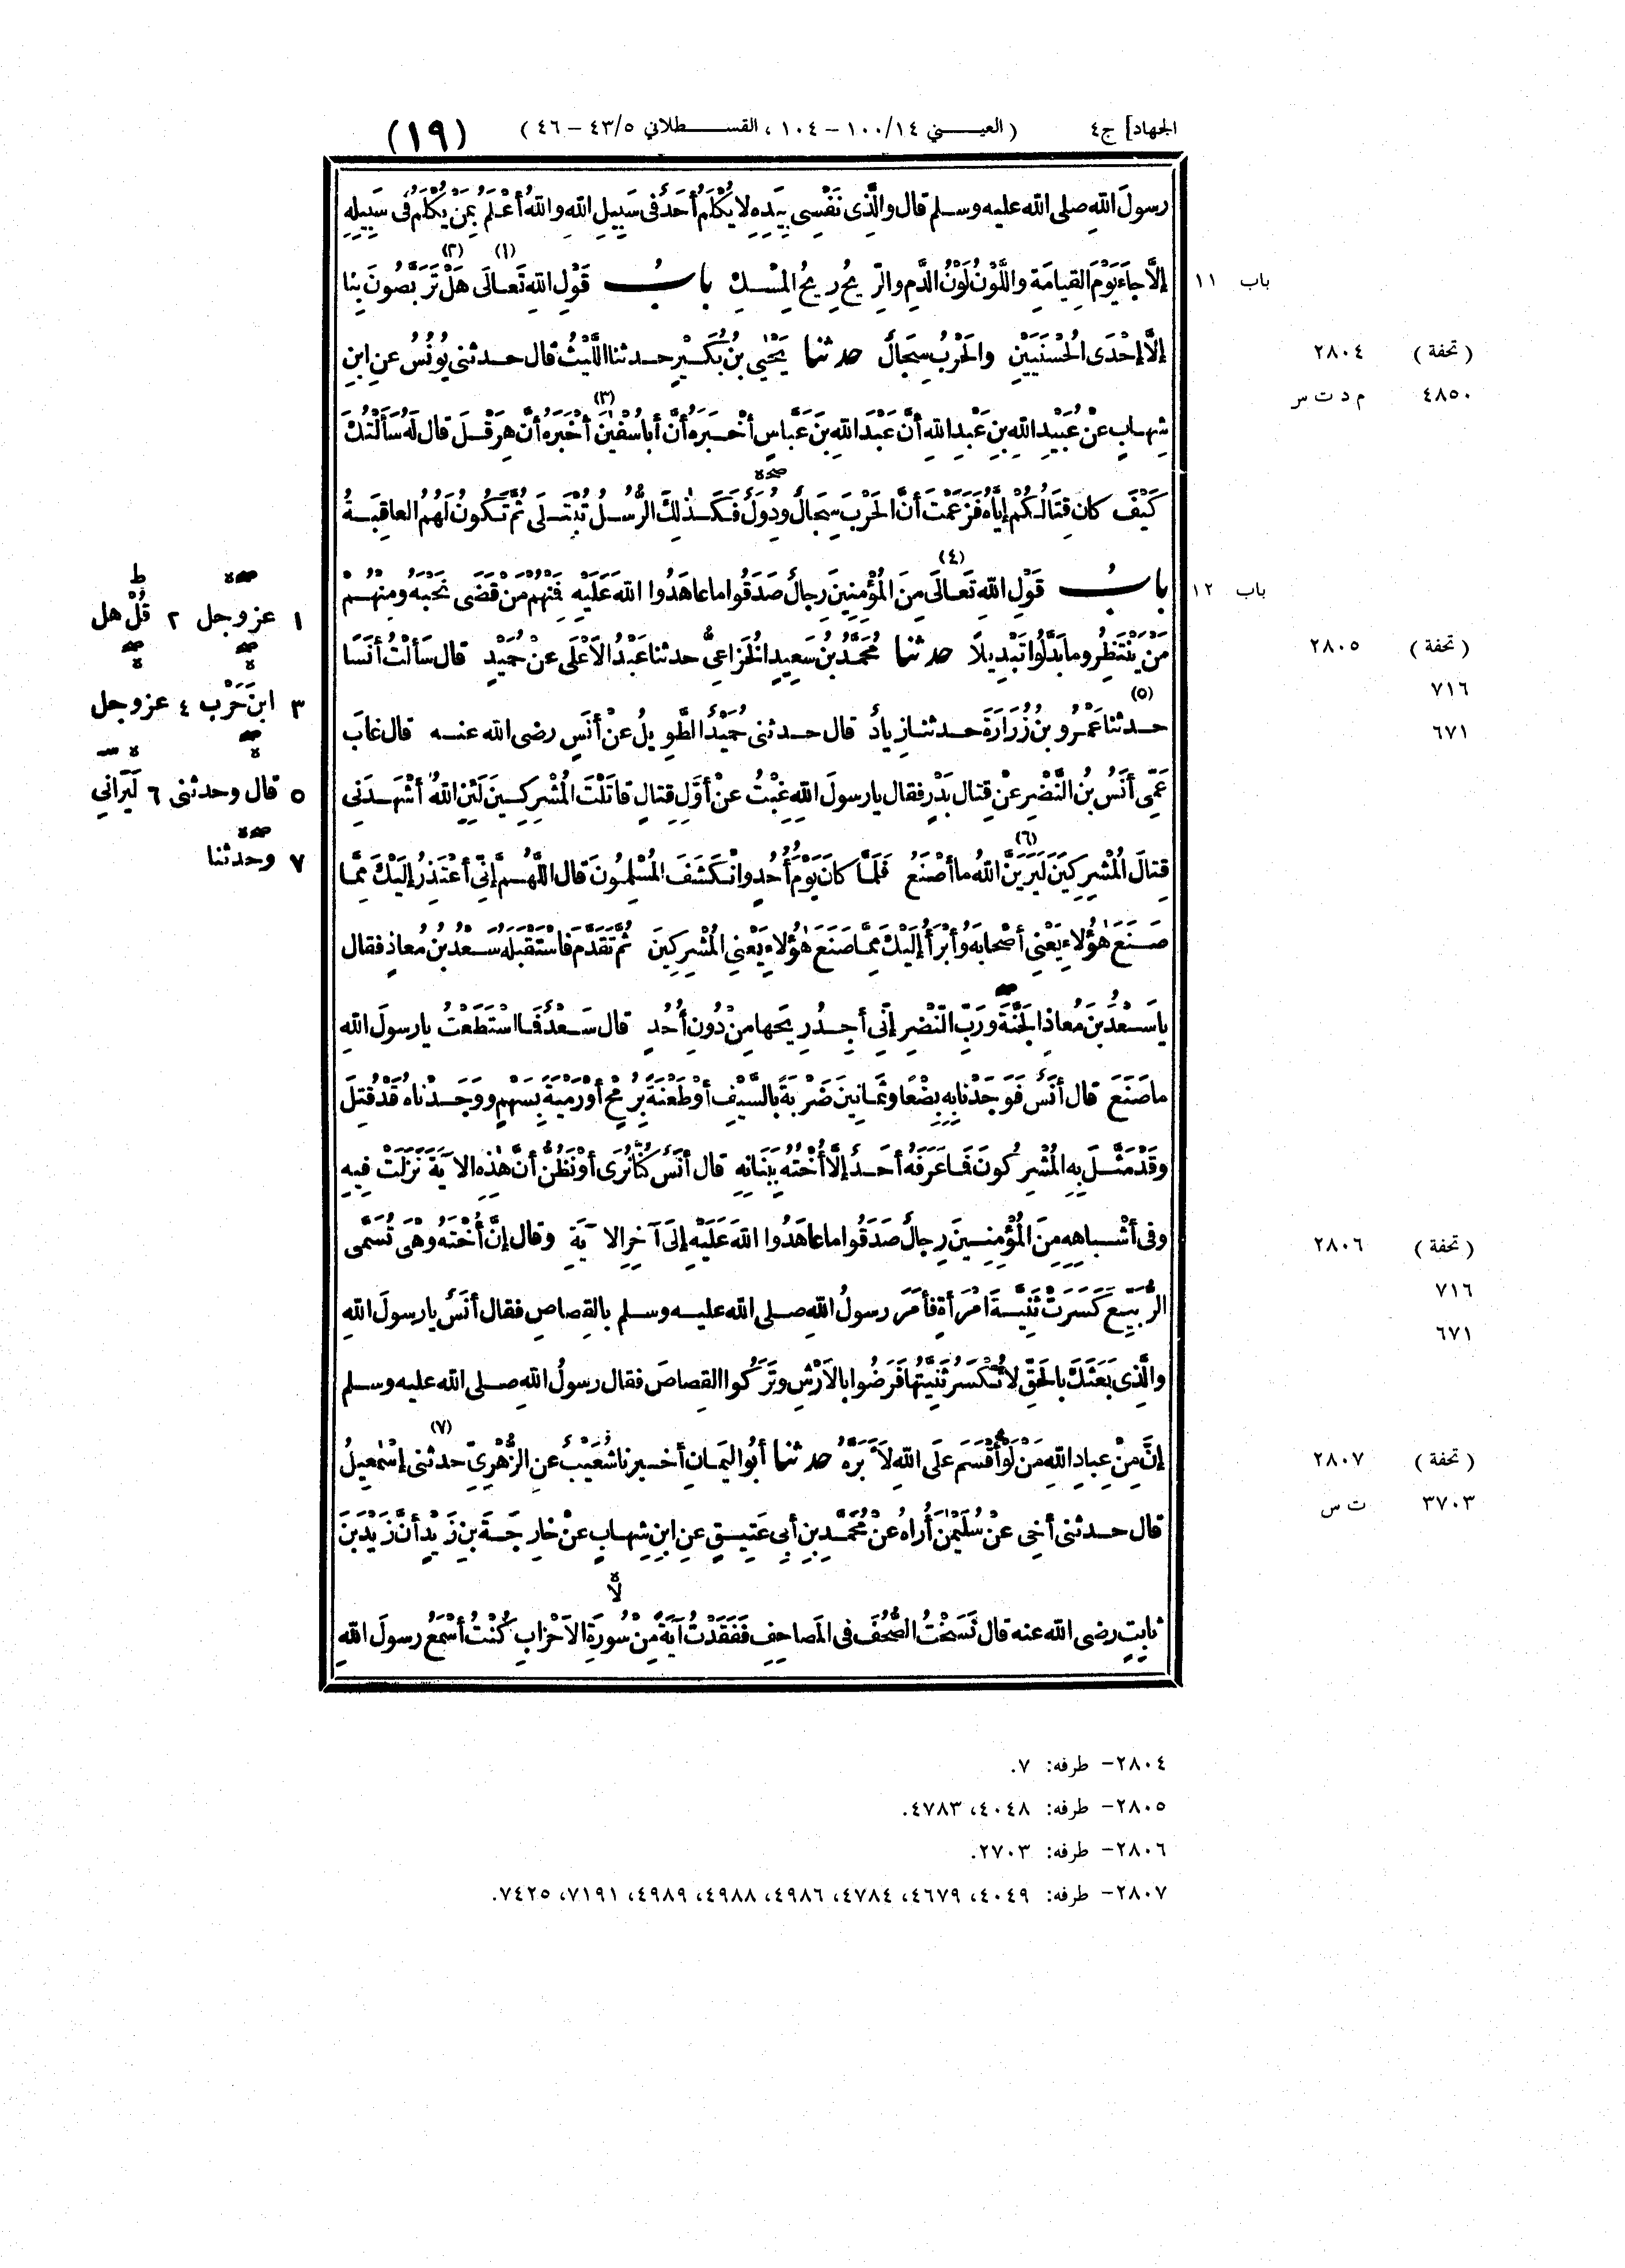 الجهاد] ج٤ (العيني ١٠٠/١٤ – ١٠٤ ، القسطلاني ٤٣/٥ – ٤٦) (١٩)
رسولَ اللهِ صلى الله عليه وسلم قال والَّذِى نَفْسِى بِيَدِهِ لا يُكْلَمُ أَحَدٌ فى سَبِيلِ اللهِ واللهُ أَعْلَمُ بِمَنْ يُكْلَمُ فى سَبِيلِهِ
إلَّا جاءَ يَوْمَ القِيامَةِ واللَّوْنُ لَوْنُ الدَّمِ والرِّيحُ رِيحُ المِسْكِ بابُ قَوْلِ اللهِ تَعالَى (١) هَلْ (٢) تَرَبَّصُونَ بِنا
باب ١١
إلَّا إحْدَى الحُسْنَيَيْنِ والحَرْبُ سِجَالٌ حدثنا يَحْيَى بنُ بُكَيْرٍ حدثنا اللَّيْثُ قال حدثنى يُونُسُ عنِ ابنِ
٢٨٠٤ (تحفة)
شِهابٍ عنْ عُبَيْدِ اللهِ بنِ عَبْدِ اللهِ أنَّ عَبْدَ اللهِ بنَ عَبَّاسٍ أخبرَهُ أنَّ أباسُفْيٰنَ (٣) أَخْبَرَهُ أنَّ هِرَقْلَ قال لَهُ سَأَلْتُكَ
م د ت س ٤٨٥٠
كَيْفَ كان قِتَالُكُمْ إيَّاهُ فَزَعَمْتَ أنَّ الحَرْبَ سِجَالٌ ودُوَلٌ فَكَذٰلِكَ الرُّسُلُ تُبْتَلَى ثُمَّ تَكُونُ لَهُمُ العاقِبَةُ
بابُ قَوْلِ اللهِ تَعالَى (٤) مِنَ المُؤْمِنِينَ رِجالٌ صَدَقُوا ما عاهَدُوا اللهَ عَلَيْهِ فَمِنْهُمْ مَنْ قَضَى نَحْبَهُ ومِنْهُمْ
باب ١٢
مَنْ يَنْتَظِرُ وما بَدَّلُوا تَبْدِيلًا حدثنا مُحَمَّدُ بنُ سَعِيدٍ الخُزَاعِىُّ حدثنا عَبْدُ الأَعْلَى عنْ حُمَيْدٍ قال سَأَلْتُ أَنَسًا
٢٨٠٥ (تحفة)
٧١٦
حدثنا (٥) عَمْرُو بنُ زُرَارَةَ حدثنا زِيادٌ قال حدثنى حُمَيْدٌ الطَّوِيلُ عنْ أَنَسٍ رضى الله عنه قال غابَ
٦٧١
عَمِّى أَنَسُ بنُ النَّضْرِ عنْ قِتَالِ بَدْرٍ فقال يا رسولَ اللهِ غِبْتُ عنْ أَوَّلِ قِتالٍ قاتَلْتَ المُشْرِكِينَ لَئِنِ اللهُ أَشْهَدَنِى
قِتالَ المُشْرِكِينَ لَيَرَيَنَّ (٦) اللهُ ما أَصْنَعُ فَلَمَّا كانَ يَوْمُ أُحُدٍ وانْكَشَفَ المُسْلِمُونَ قال اللَّهُمَّ إنِّى أَعْتَذِرُ إلَيْكَ مِمَّا
صَنَعَ هٰؤُلاءِ يَعْنِى أَصْحابَهُ وأَبْرَأُ إلَيْكَ مِمَّا صَنَعَ هٰؤُلاءِ يَعْنِى المُشْرِكِينَ ثُمَّ تَقَدَّمَ فاسْتَقْبَلَهُ سَعْدُ بنُ مُعاذٍ فقال
يا سَعْدُ بنَ مُعاذٍ الجَنَّةَ ورَبِّ النَّضْرِ إنِّى أَجِدُ رِيحَها مِنْ دُونِ أُحُدٍ قال سَعْدٌ فَما اسْتَطَعْتُ يا رسولَ اللهِ
ما صَنَعَ قال أَنَسٌ فَوَجَدْنا بِهِ بِضْعًا وثَمانِينَ ضَرْبَةً بالسَّيْفِ أوْ طَعْنَةً بِرُمْحٍ أوْ رَمْيَةً بِسَهْمٍ ووَجَدْناهُ قَدْ قُتِلَ
وقَدْ مَثَّلَ بِهِ المُشْرِكُونَ فَما عَرَفَهُ أَحَدٌ إلَّا أُخْتُهُ بِبَنانِهِ قال أَنَسٌ كُنَّا نُرَى أوْ نَظُنُّ أنَّ هٰذِهِ الآيَةَ نَزَلَتْ فِيهِ
وفى أَشْباهِهِ مِنَ المُؤْمِنِينَ رِجالٌ صَدَقُوا ما عاهَدُوا اللهَ عَلَيْهِ إلَى آخِرِ الآيَةِ وقال إنَّ أُخْتَهُ وهْىَ تُسَمَّى
٢٨٠٦ (تحفة)
٧١٦
الرُّبَيِّعَ كَسَرَتْ ثَنِيَّةَ امْرَأَةٍ فأَمَرَ رسولُ اللهِ صلى الله عليه وسلم بالقِصاصِ فقال أَنَسٌ يا رسولَ اللهِ
٦٧١
والَّذِى بَعَثَكَ بالحَقِّ لا تُكْسَرُ ثَنِيَّتُها فَرَضُوا بالأَرْشِ وتَرَكُوا القِصاصَ فقال رسولُ اللهِ صلى الله عليه وسلم
إنَّ مِنْ عِبادِ اللهِ مَنْ لَوْ أَقْسَمَ علَى اللهِ لَأَبَرَّهُ حدثنا أبُو اليَمانِ أخبرنا شُعَيْبٌ عنِ الزُّهْرِىِّ حدثنى (٧) إسْمٰعِيلُ
٢٨٠٧ (تحفة)
قال حدثنى أَخِى عنْ سُلَيْمٰنَ أُرَاهُ عنْ مُحَمَّدِ بنِ أَبِى عَتِيقٍ عنِ ابنِ شِهابٍ عنْ خارِجَةَ بنِ زَيْدٍ أنَّ زَيْدَ بنَ
ت س ٣٧٠٣
ثابِتٍ رضى الله عنه قال نَسَخْتُ الصُّحُفَ فى المَصاحِفِ فَفَقَدْتُ آيَةً مِنْ سُورَةِ الأَحْزابِ كُنْتُ أَسْمَعُ رسولَ اللهِ
١ عز وجل ٢ قُلْ هل
٣ ابنَ حَرْبٍ ٤ عز وجل
٥ قال وحدثنى ٦ لَيَرَانِي
٧ وحدثنا
٢٨٠٤– طرفه: ٧.
٢٨٠٥– طرفه: ٤٠٤٨، ٤٧٨٣.
٢٨٠٦– طرفه: ٢٧٠٣.
٢٨٠٧– طرفه: ٤٠٤٩، ٤٦٧٩، ٤٧٨٤، ٤٩٨٦، ٤٩٨٨، ٤٩٨٩، ٧١٩١، ٧٤٢٥.